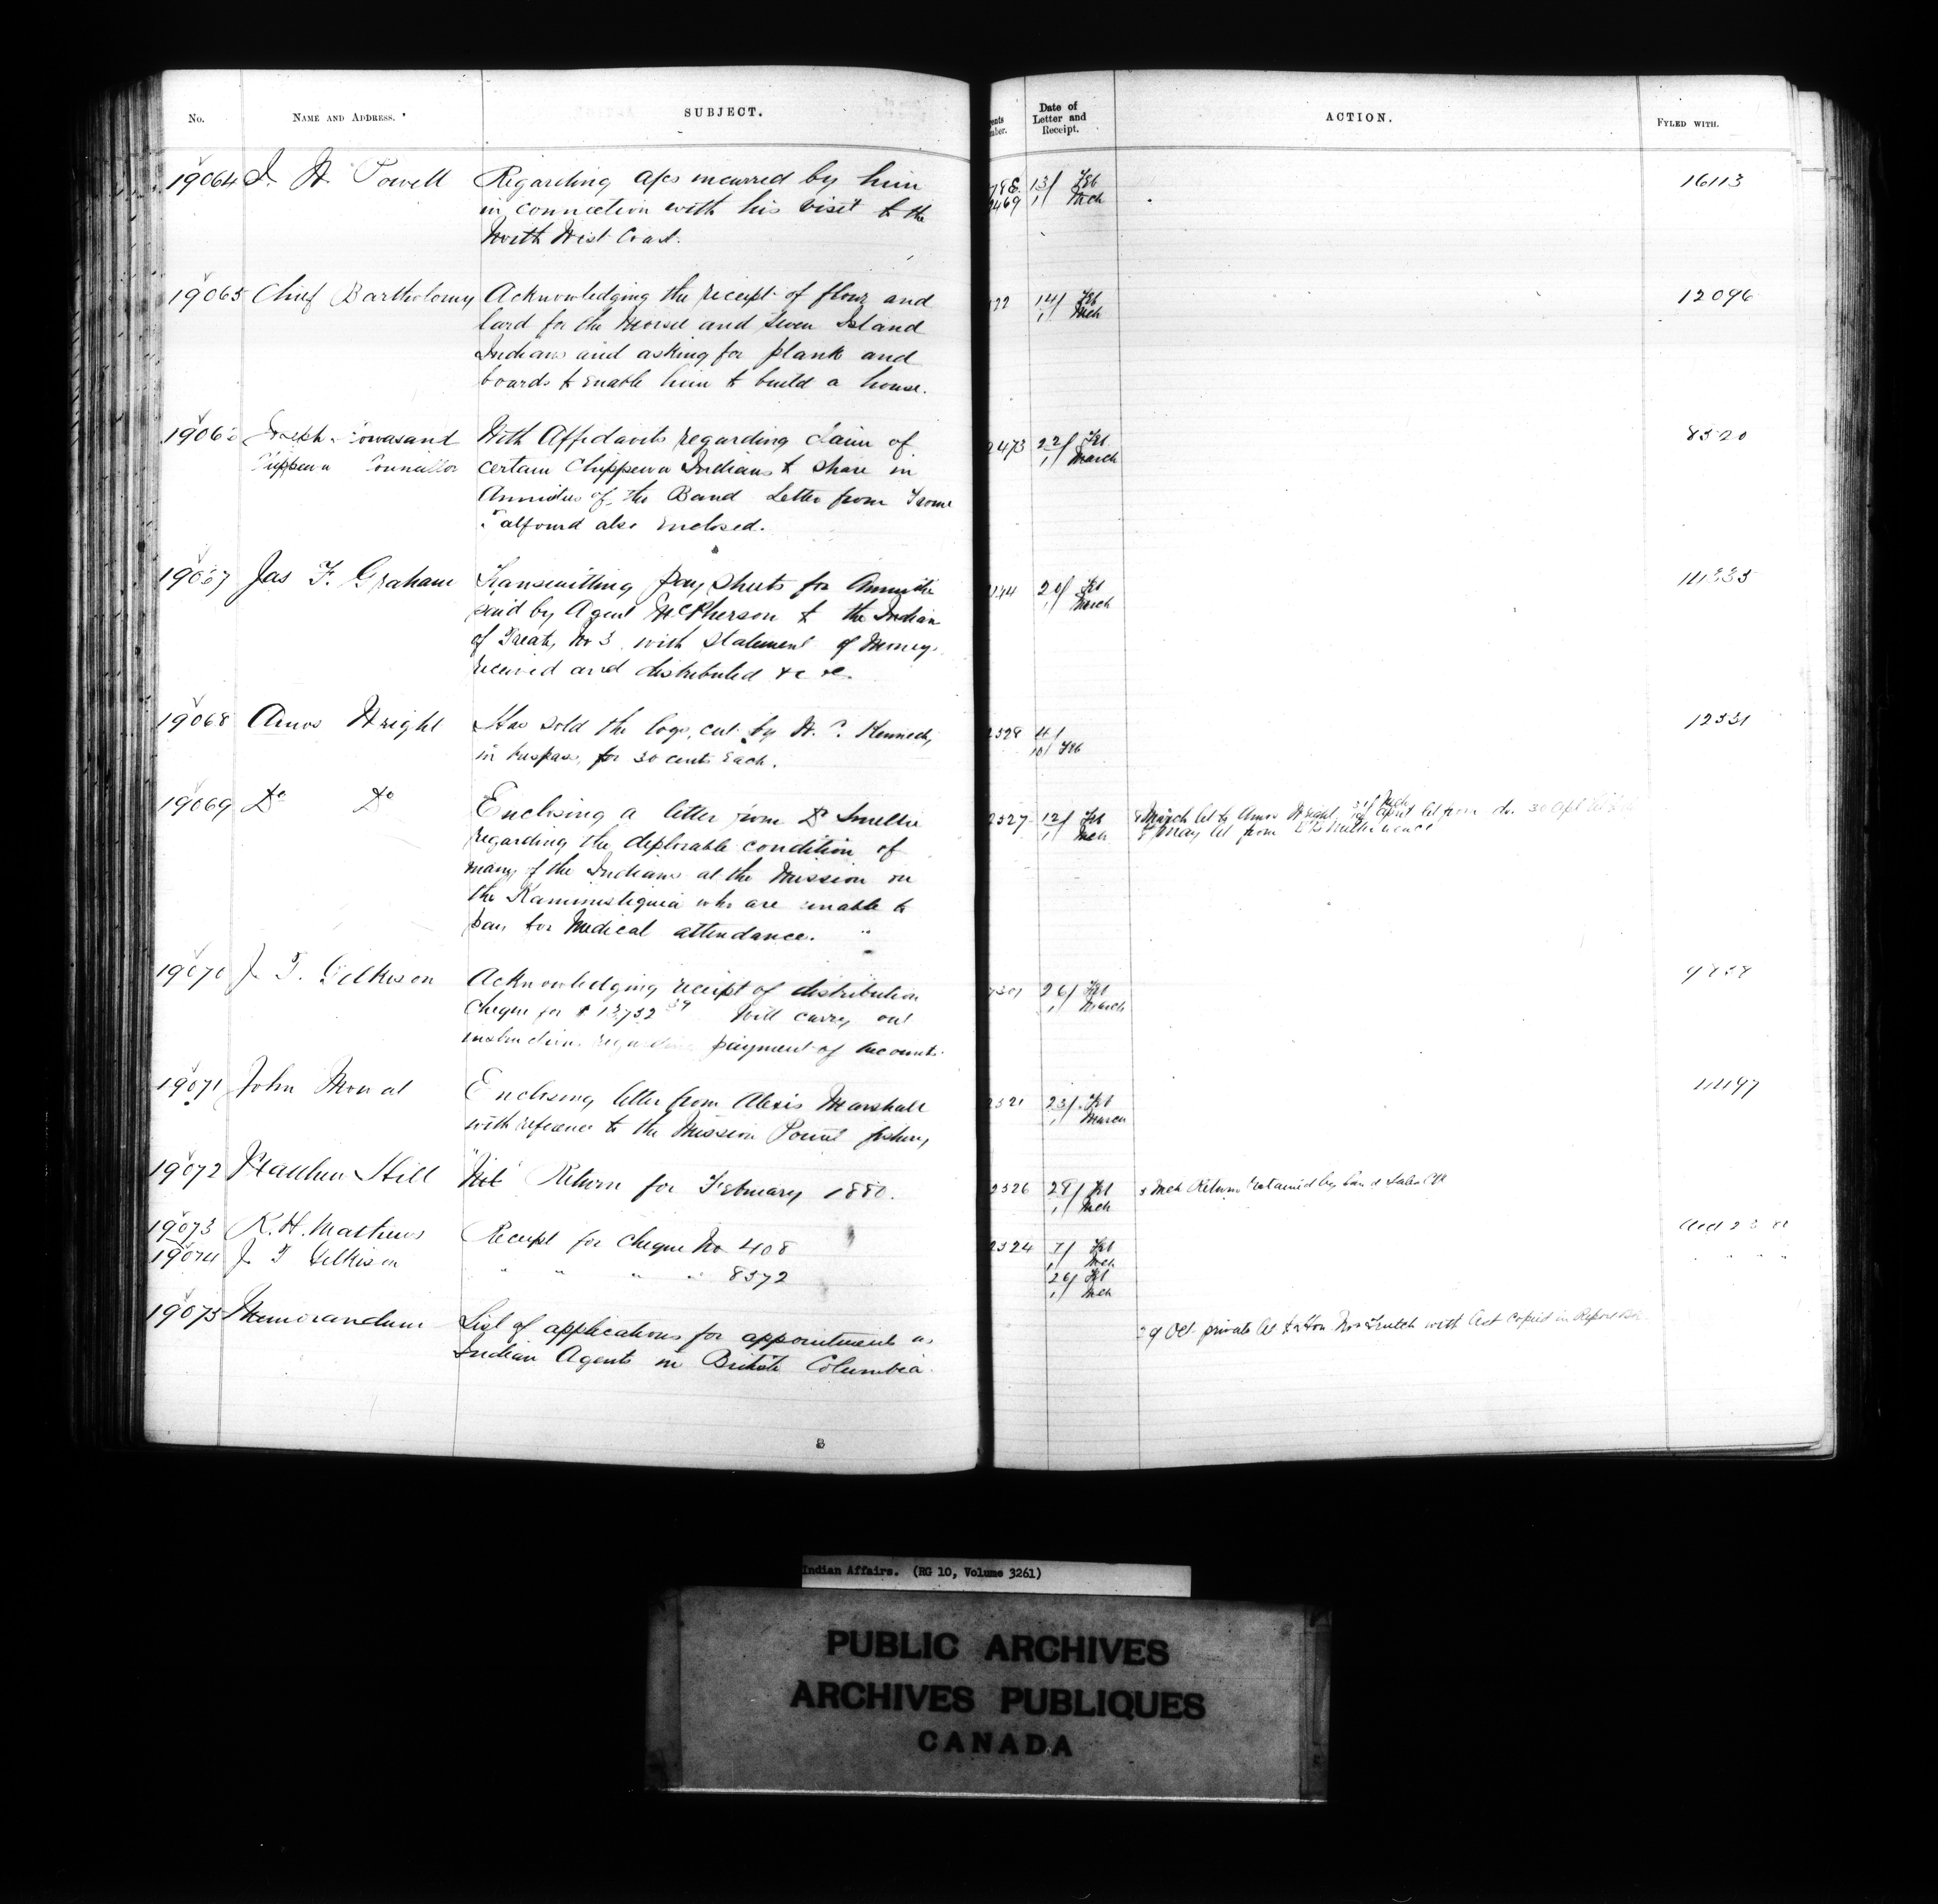 No. NAME AND ADDRESS. SUBJECT. Date of Letter and Receipt. ACTION. FYLED WITH.
19064 I. W. Powell Regarding a/cs incurred by him 13/ Feb 16113
in connection with his visit to the 2469 1/ Mch
North West Coast.
19065 Chief Bartholomy Acknowledging the receipt of flour and 14/ Feb 12096
lard for the Moisie and Seven Island 1/ Mch
Indians and asking for plank and
boards to enable him to build a house.
19066 Joseph With Affidavits regarding claim of 2473 22/ Feb 8520
Chippewa Councillor certain Chippewa Indians to share in 1/ March
Annuities of the Band Letter from
Talfourd also enclosed.
19067 Jas F. Graham Transmitting pay sheets for Annuities 20/ Feb
paid by Agent McPherson to the Indian 1/ March
of Treaty No 3 with Statement of Moneys
received and distributed &c &c.
19068 Amos Wright Has sold the logs, cut by W. Kennedy, 2328 4/ 12331
in trespass, for 30 cents each. 10/ Feb
19069 Do Do Enclosing a letter from Dr Smellie 2327 12/ Feb March let to Amos Wright, April let from do. 30 Apl
regarding the deplorable condition of 1/ Mch May let from
many of the Indians at the Mission on
the Kaministiquia who are unable to
pay for Medical attendance.
19070 J. T. Gilkison Acknowledging receipt of distribution 26/ Feb
Cheque for $ 13,732 39 Will carry out 1/ March
instructions regarding payment of Accounts.
19071 John Mowat Enclosing letter from Alexis Marshall 2321 23/ Feb
with reference to the Mission Point fishery 1/ March
19072 Matthew Hill Return for February 1880. 2326 28/ Feb 3 Mch Return retained by Land Sales
1/ Mch
19073 R. H. Mathews Receipt for Cheque No 408 2324 7/ Feb
1/ Mch
19074 J T Gilkison " " " " 8372 26/ Feb
1/ Mch
19075 Memorandum List of applications for appointment as 29 Oct. private let to Hon Trutch with list copied in Report
Indian Agents in British Columbia.
8
Indian Affairs. (RG 10, Volume 3261)
PUBLIC ARCHIVES
ARCHIVES PUBLIQUES
CANADA